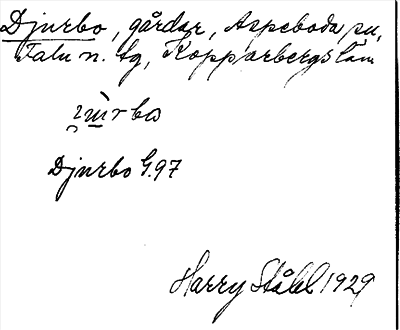 Djurbo, gårdar, Aspeboda sn,
Falu n. tg, Kopparbergs län
Djurbo G.97
Harry Ståhl 1929